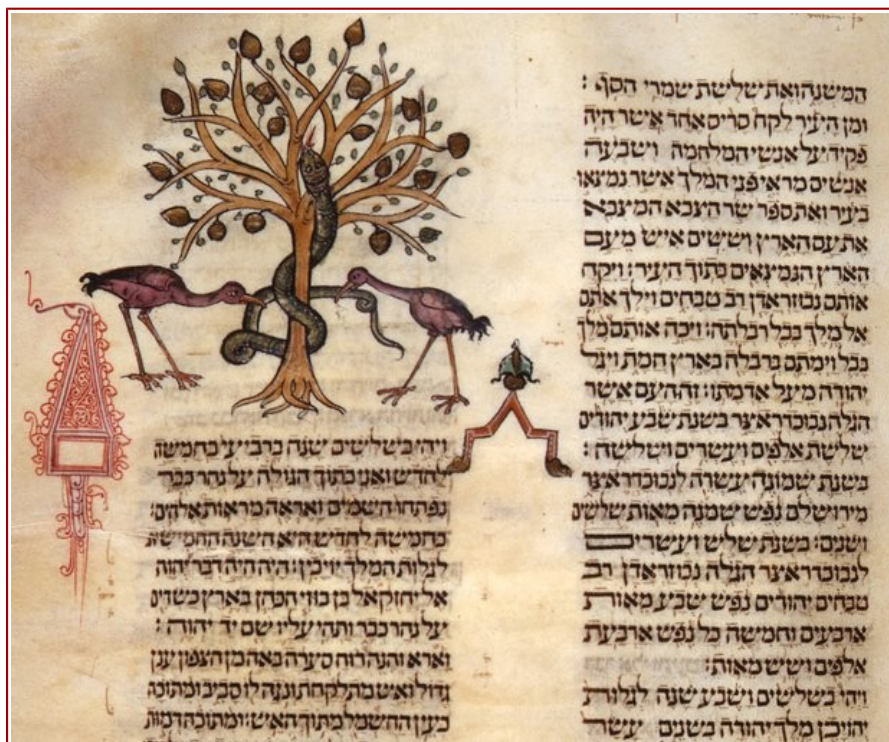 המשנה ואת שלישת שמרי הסף :
ומן העיר לקח סריס אחד אשר היה
פקיד על אנשי המלחמה ושבעה
אנשים מראי פני המלך אשר נמצאו
בעיר ואת ספר שר הצבא המצבא
את עם הארץ וששים איש מעם
הארץ הנמצאים בתוך העיר : ויקח
אותם נבוזראדן רב טבחים וילך אתם
אל מלך בבל רבלתה : ויכה אותם מלך
בבל וימתם ברבלה בארץ חמת ויגל
יהודה מעל אדמתו : זה העם אשר
הגלה נבוכדראצר בשנת שבע יהודים
שלשת אלפים ועשרים ושלשה :
בשנת שמונה עשרה לנבוכדראצר
מירושלם נפש שמנה מאות שלשים
ושנים : בשנת שלש ועשרים
לנבוכדראצר הגלה נבוזראדן רב
טבחים יהודים נפש שבע מאות
ארבעים וחמשה כל נפש ארבעת
אלפים ושש מאות :
ויהי בשלשים ושבע שנה לגלות
יהויכן מלך יהודה בשנים עשר
ויהי בשלושים שנה ברביעי בחמשה
לחדש ואני בתוך הגולה על נהר כבר
נפתחו השמים ואראה מראות אלהים :
בחמישה לחדש היא השנה החמישית
לגלות המלך יויכין : היה היה דבר יהוה
אל יחזקאל בן בוזי הכהן בארץ כשדים
על נהר כבר ותהי עליו שם יד יהוה :
וארא והנה רוח סערה באה מן הצפון ענן
גדול ואש מתלקחת ונגה לו סביב ומתוכה
כעין החשמל מתוך האש : ומתוכה דמות